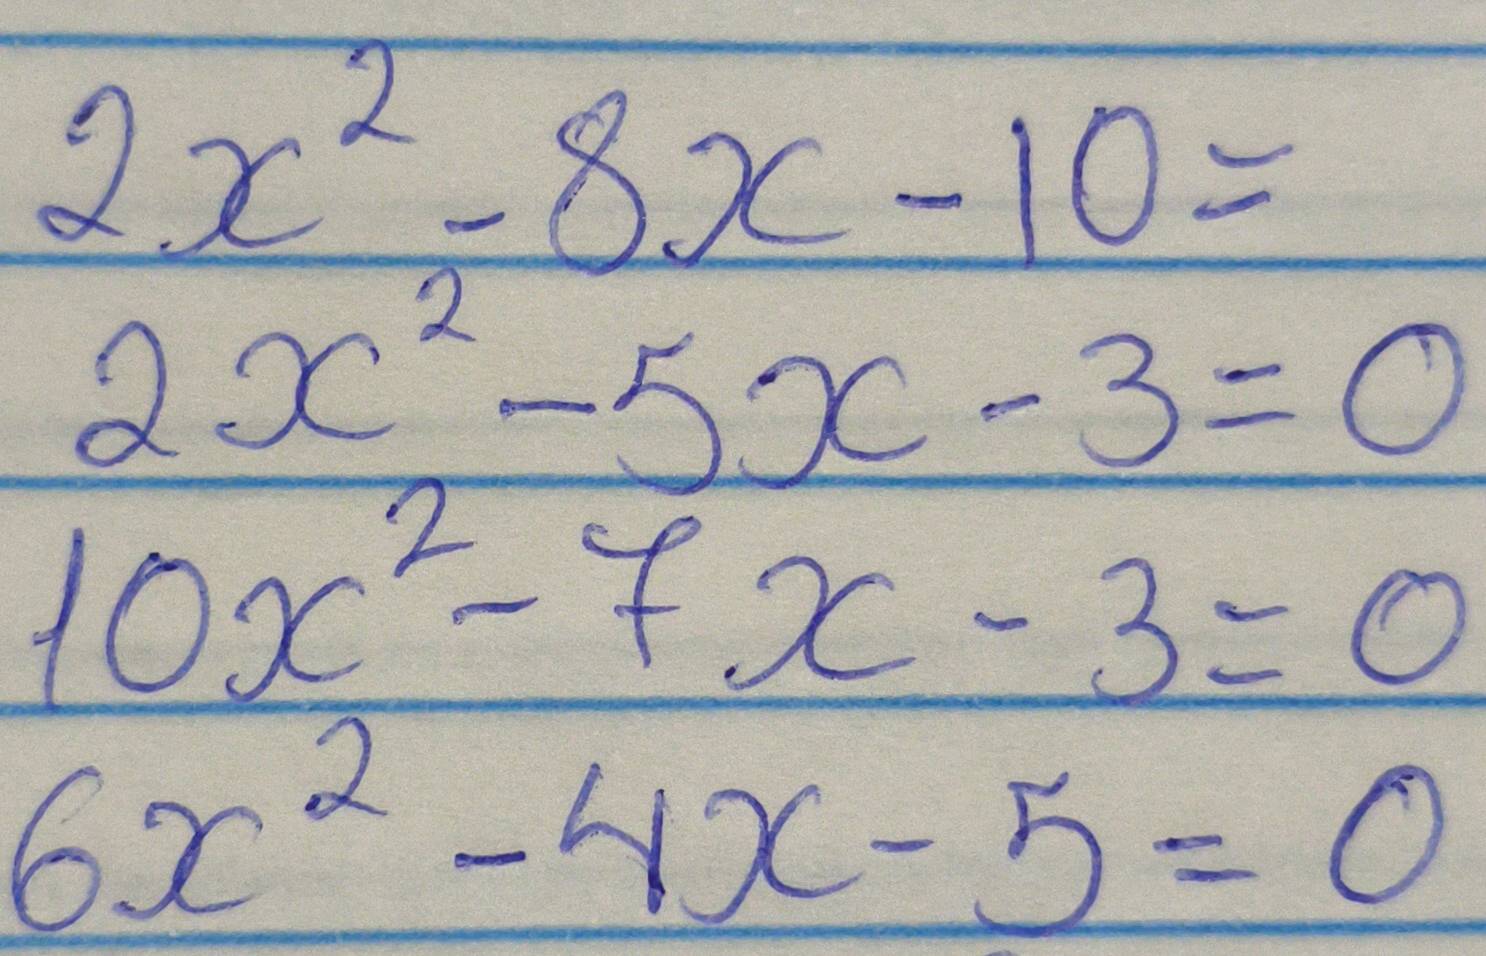 2x² - 8x - 10 =
2x² - 5x - 3 = 0
10x² - 7x - 3 = 0
6x² - 4x - 5 = 0